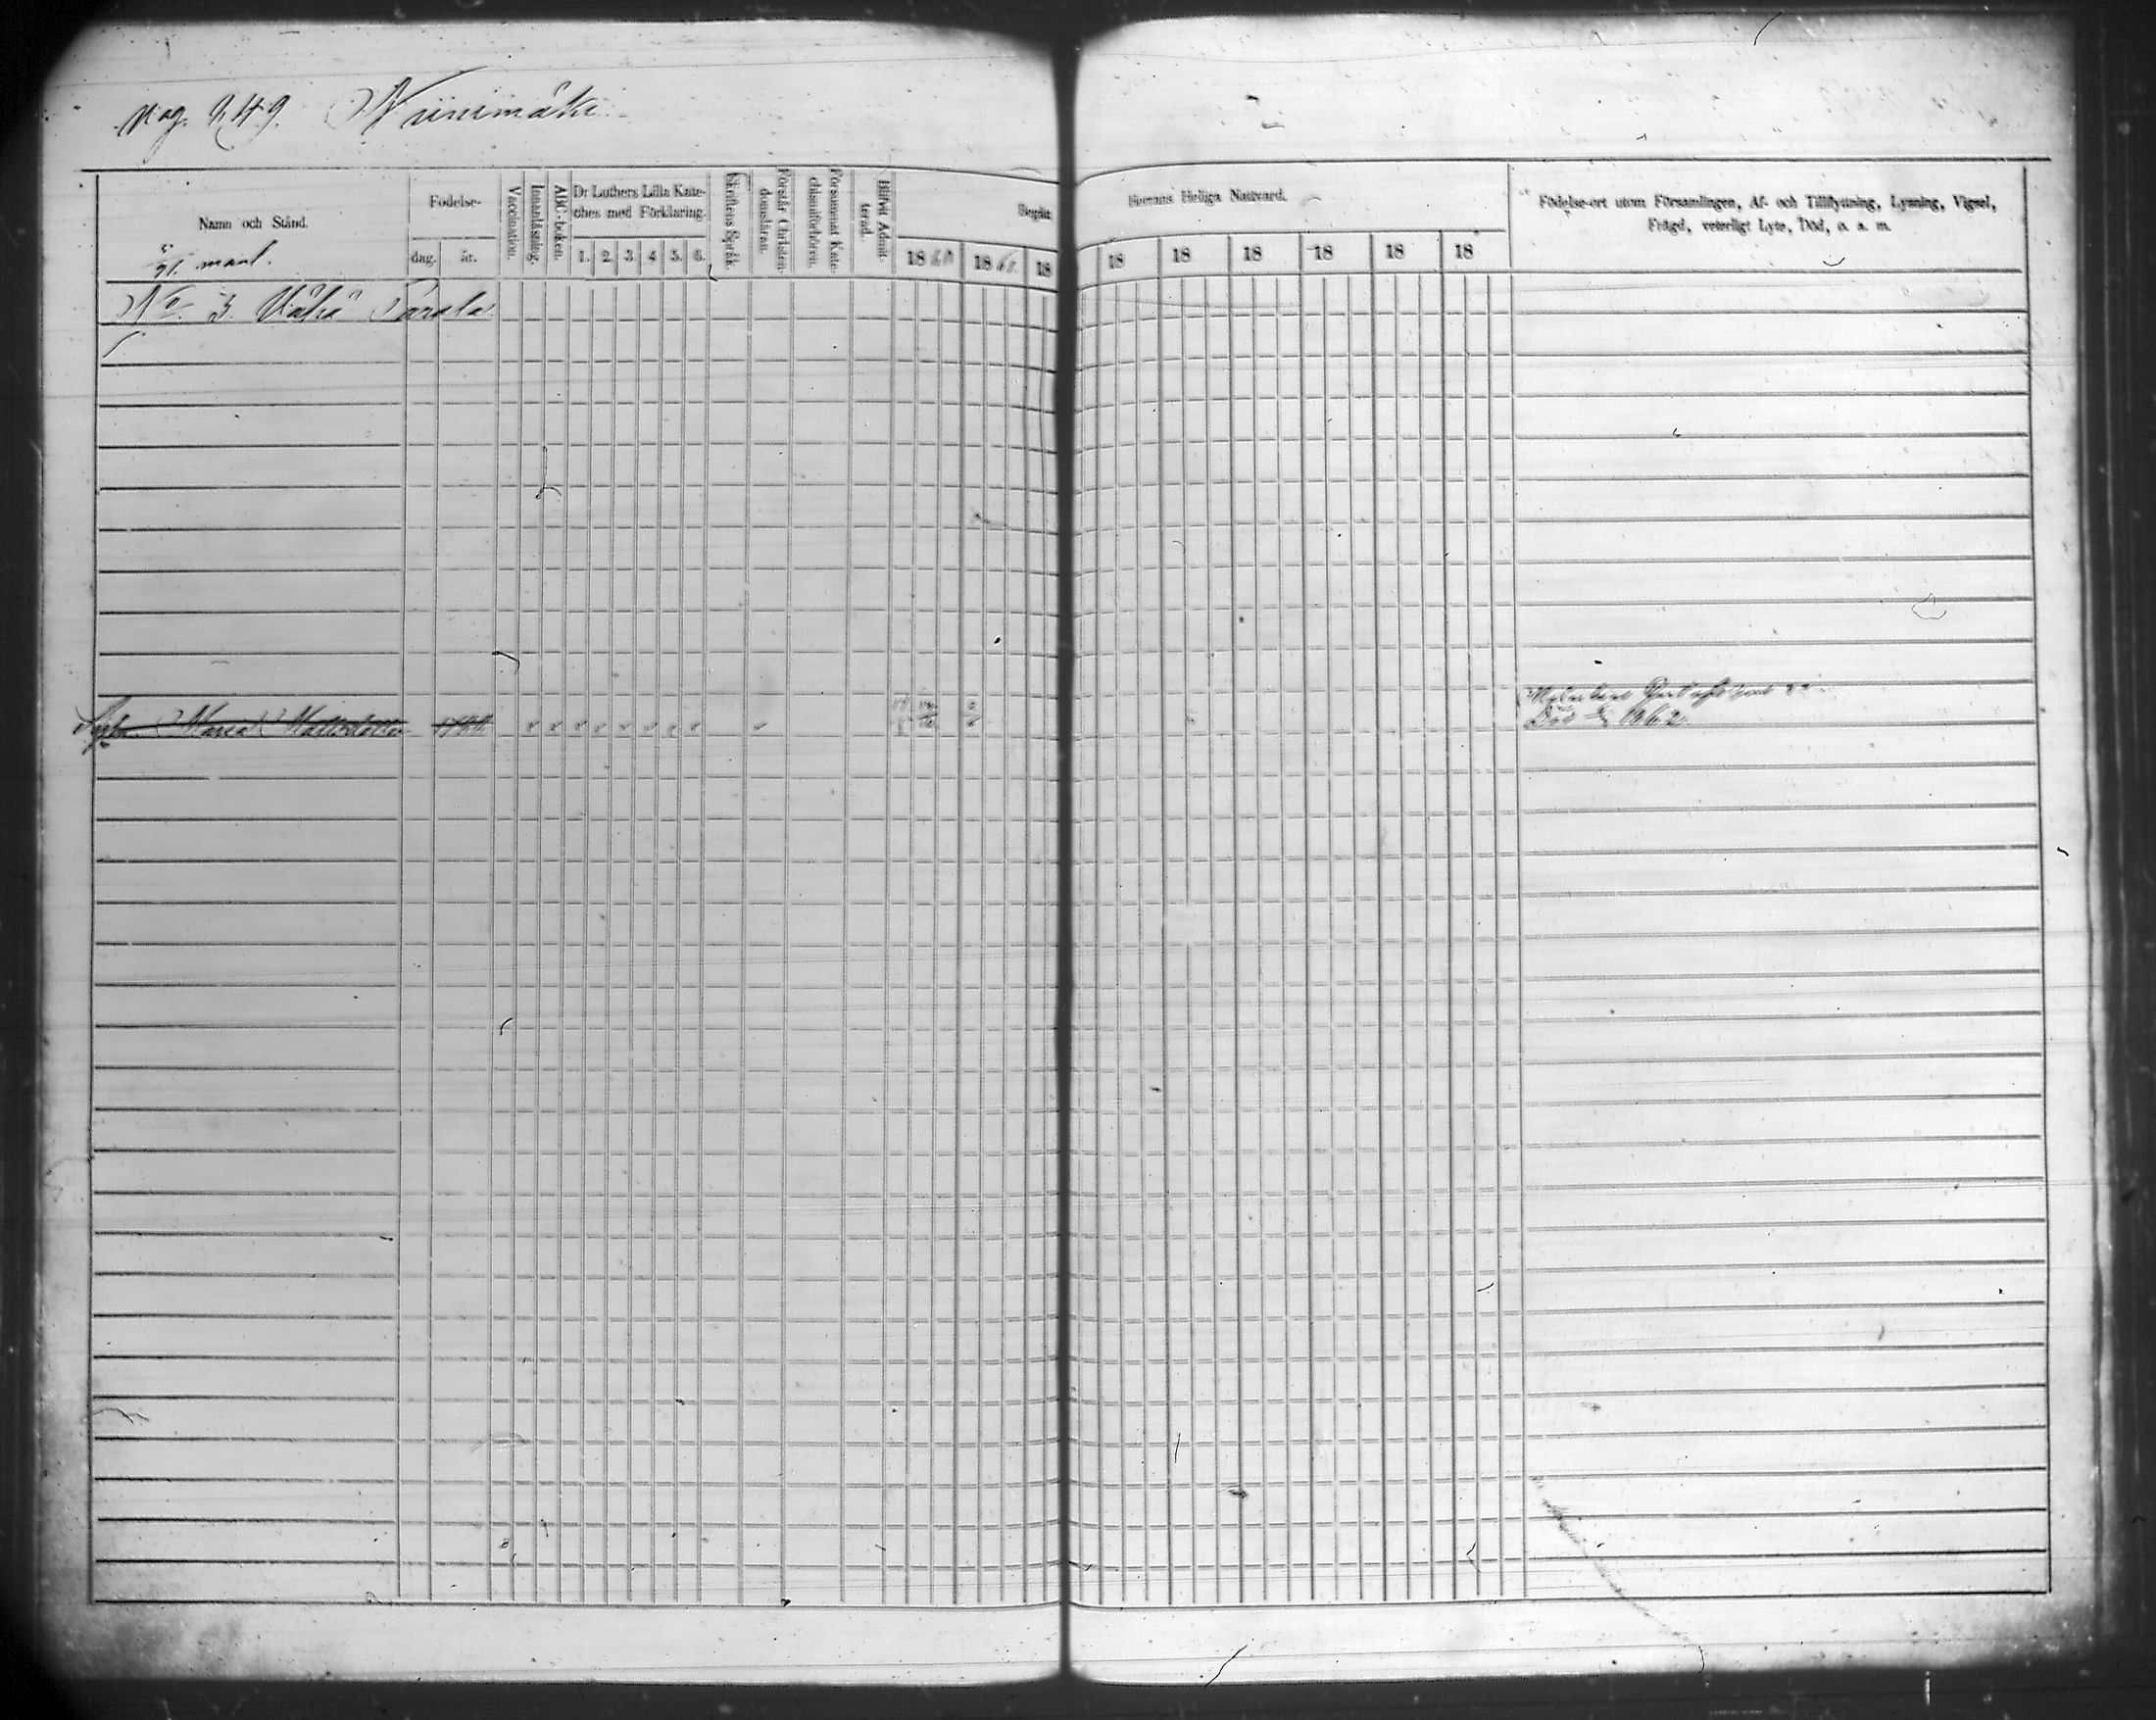 pag. 949. Niinimäki
Namn och Stånd.
Födelse-
dag.
år.
Vaccination.
Innanläsning.
ABC-boken.
Dr Luthers Lilla Kate-
ches med Förklaring.
1. 2. 3. 4 5. 6.
Skriftens Språk.
Förstår Christen-
domsläran.
Försummat Kate-
chismiförhören.
Blifvit Admit-
terad.
Begått
Herrans Heliga Nattvard.
18 60 18 61. 18 18 18 18 18 18 18
Födelse-ort utom Församlingen, Af- och Tillflyttning, Lysning, Vigsel,
Frägd, veterligt Lyte, Död, o. a. m.
mant.
No. 3. Vähä Parala
Maria Mattsdotter
Död 1862.